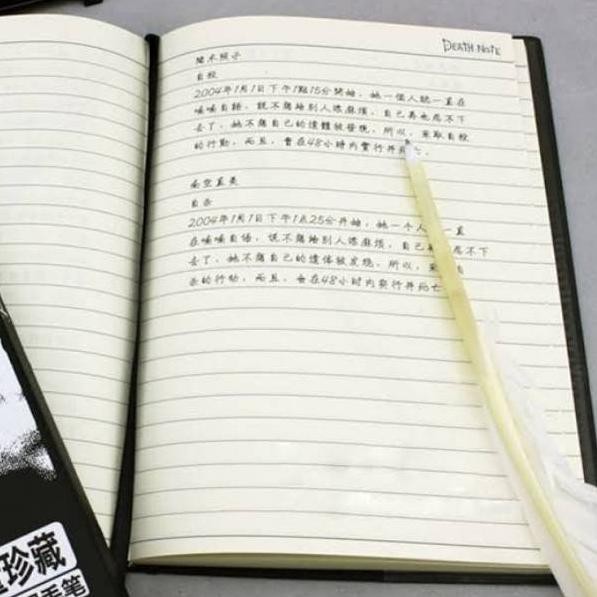 DEATH NOTE
間木照子
自殺
2004年1月1日下午1點15分開始，她一個人就一直在
喃喃自語，說不想給別人添麻煩，自己再也忍不下
去了，她不想自己的遺體被發現，所以，采取自殺
的行動，而且，會在48小時內實行并死亡。
南空直美
自杀
2004年1月1日下午1点25分开始，她一个人一直
在喃喃自语，说不想给别人添麻烦，自己忍不下
去了，她不想自己的遗体被发现，所以，采自
杀的行动，而且，会在48小时内实行并死亡
珍藏
笔